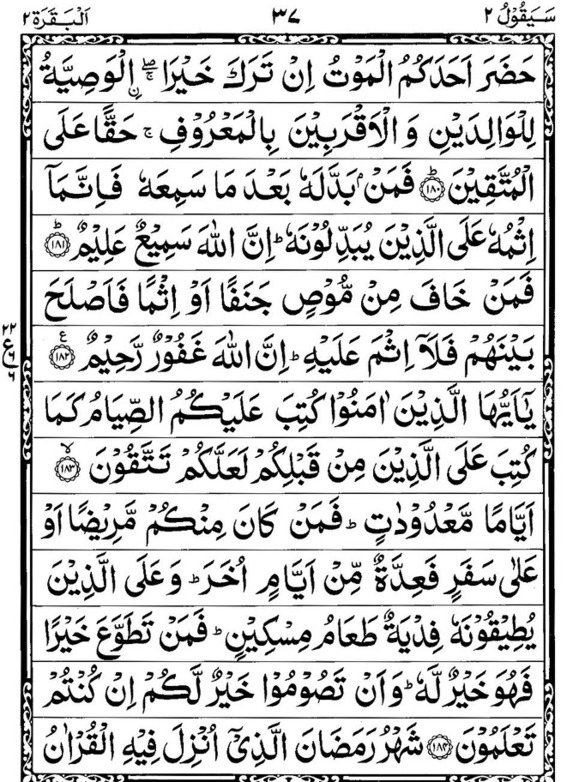 سَيَقُوْلُ ٢ ٣٧ اَلْبَقَرَة ٢
حَضَرَ اَحَدَكُمُ الْمَوْتُ اِنْ تَرَكَ خَيْرَا ۖۚ اۨلْوَصِيَّةُ
لِلْوَالِدَيْنِ وَ الْاَقْرَبِيْنَ بِالْمَعْرُوْفِ ۚ حَقًّا عَلَى
الْمُتَّقِيْنَ ؕ‏﴿۱۸۰﴾ فَمَنْۢ بَدَّلَهٗ بَعْدَ مَا سَمِعَهٗ فَاِنَّمَاۤ
اِثْمُهٗ عَلَى الَّذِيْنَ يُبَدِّلُوْنَهٗ ؕ اِنَّ اللّٰهَ سَمِيْعٌ عَلِيْمٌ ؕ‏﴿۱۸۱﴾
فَمَنْ خَافَ مِنْ مُّوْصٍ جَنَفًا اَوْ اِثْمًا فَاَصْلَحَ
بَيْنَهُمْ فَلَاۤ اِثْمَ عَلَيْهِ ؕ اِنَّ اللّٰهَ غَفُوْرٌ رَّحِيْمٌ ﴿۱۸۲﴾ ع
٢٢ ع ٦ ٦
يٰۤاَيُّهَا الَّذِيْنَ اٰمَنُوْا كُتِبَ عَلَيْکُمُ الصِّيَامُ کَمَا
كُتِبَ عَلَى الَّذِيْنَ مِنْ قَبْلِکُمْ لَعَلَّكُمْ تَتَّقُوْنَ ۙ‏﴿۱۸۳﴾
اَيَّامًا مَّعْدُوْدٰتٍ ؕ فَمَنْ كَانَ مِنْكُمْ مَّرِيْضًا اَوْ
عَلٰى سَفَرٍ فَعِدَّةٌ مِّنْ اَيَّامٍ اُخَرَ ؕ وَ عَلَى الَّذِيْنَ
يُطِيْقُوْنَهٗ فِدْيَةٌ طَعَامُ مِسْكِيْنٍ ؕ فَمَنْ تَطَوَّعَ خَيْرًا
فَهُوَ خَيْرٌ لَّهٗ ؕ وَ اَنْ تَصُوْمُوْا خَيْرٌ لَّکُمْ اِنْ كُنْتُمْ
تَعْلَمُوْنَ ﴿۱۸۴﴾ شَهْرُ رَمَضَانَ الَّذِيْۤ اُنْزِلَ فِيْهِ الْقُرْاٰنُ